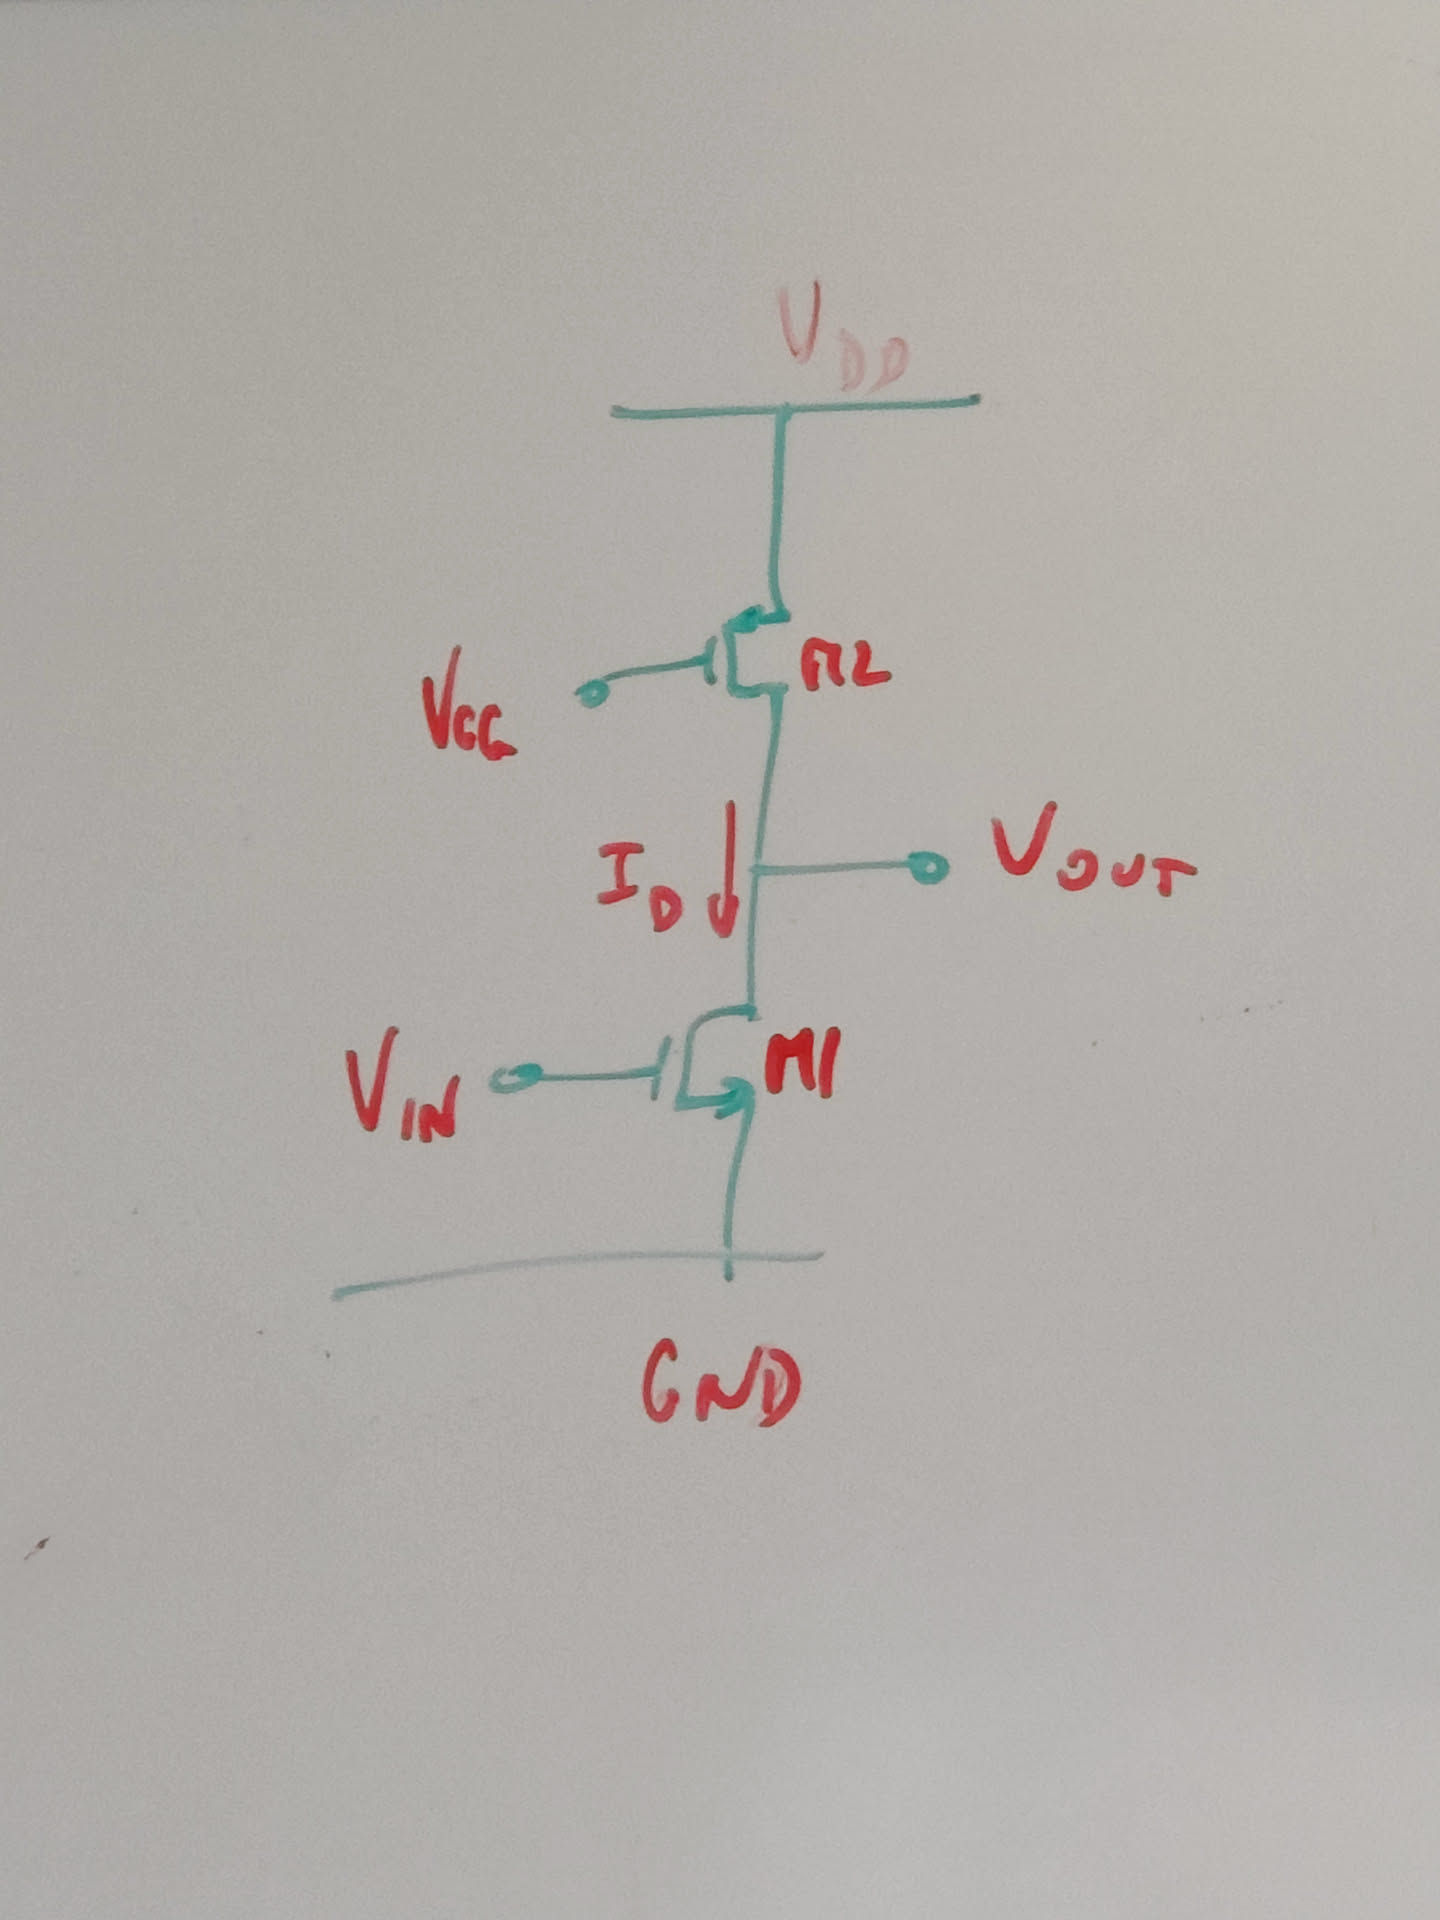 VDD
M2
VGG
ID
VOUT
VIN
M1
GND